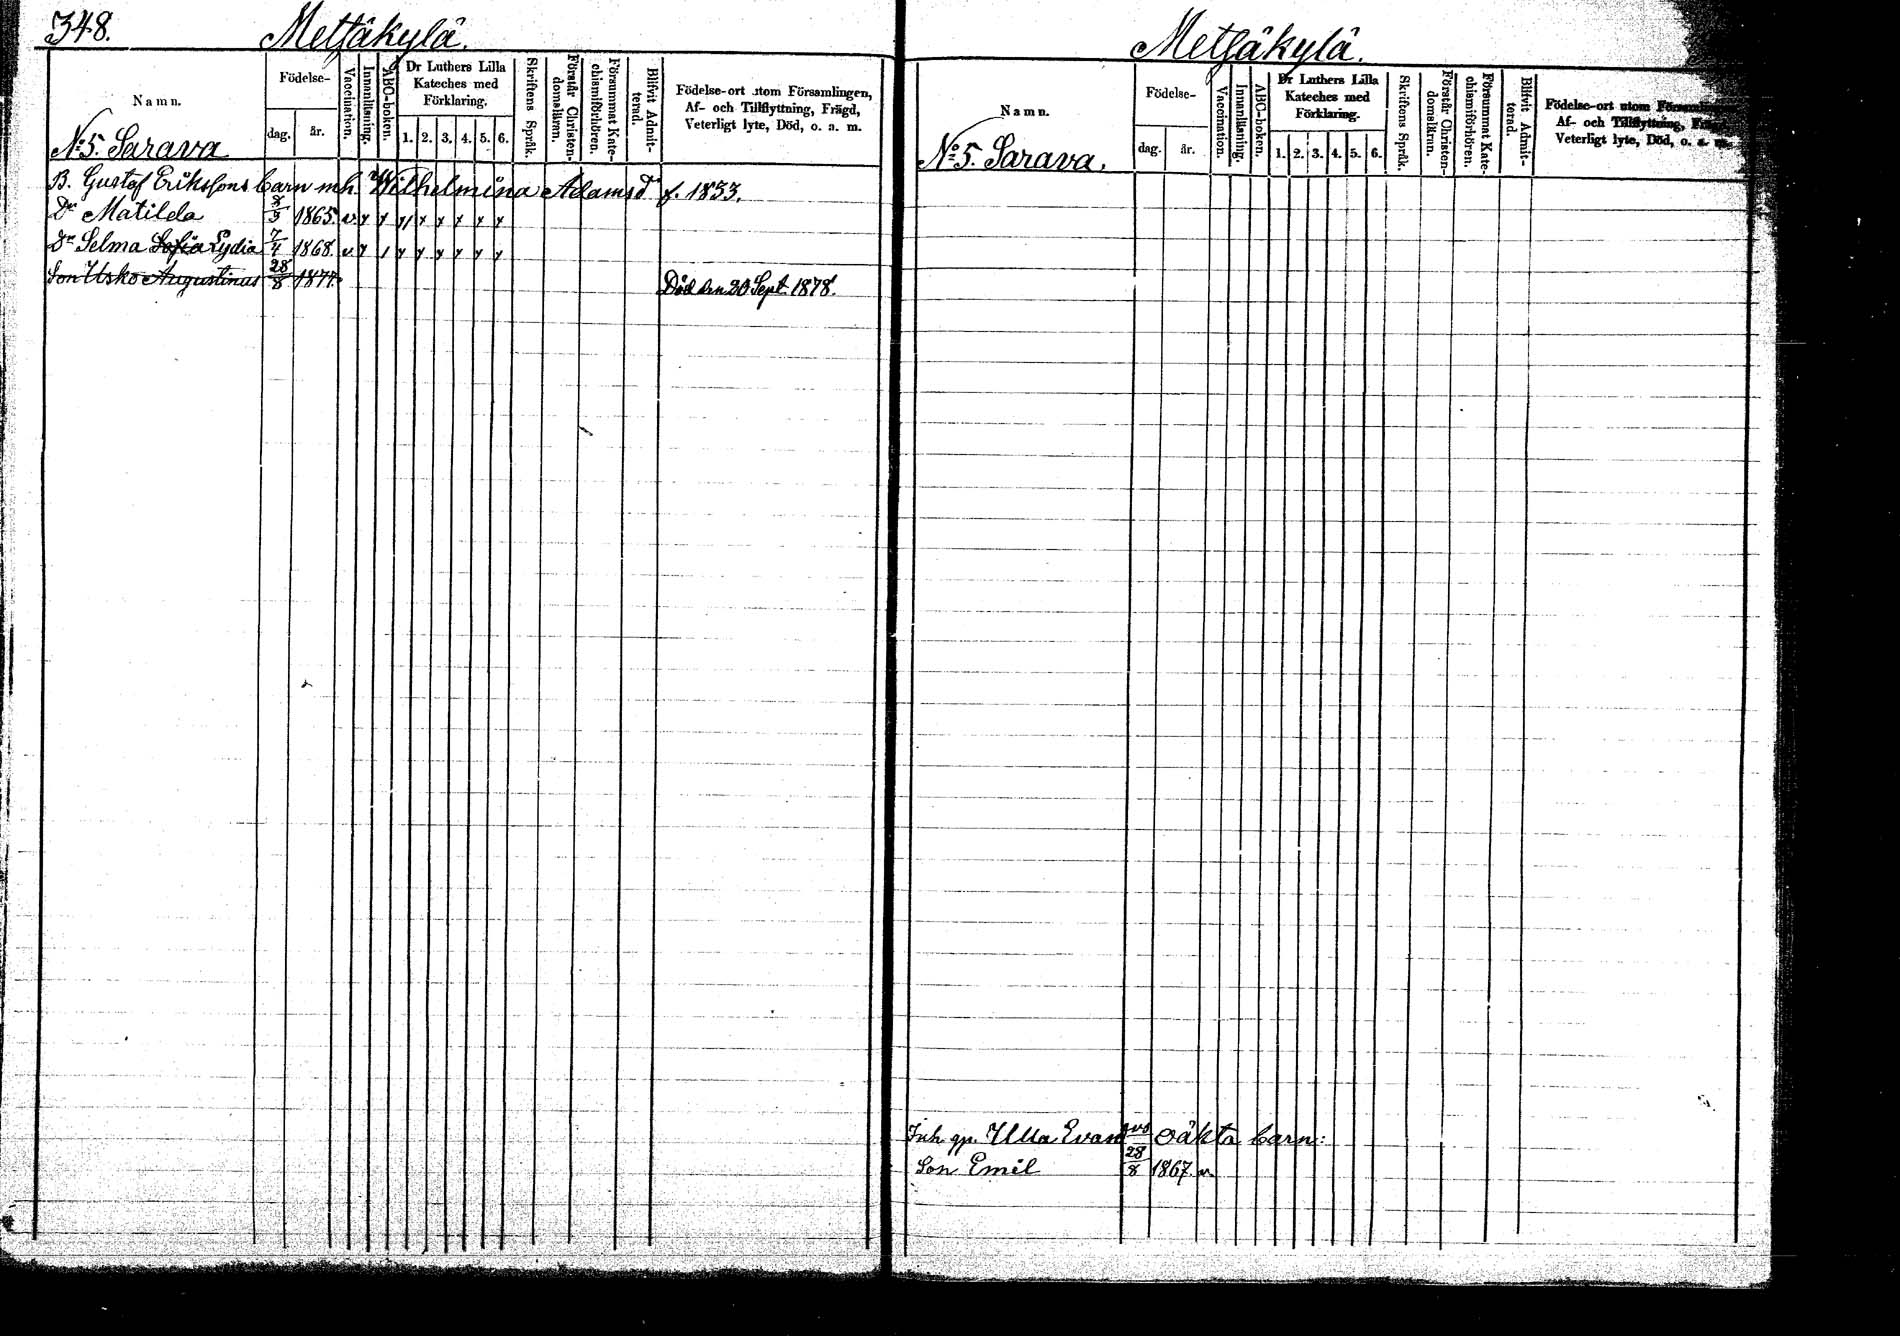 348.
Metsäkylä.
Namn.
Födelse-
dag.
år.
Vaccination.
Innanläsning.
ABC-boken.
Dr Luthers Lilla
Kateches med
Förklaring.
1. 2. 3. 4. 5. 6.
Skriftens Språk.
Förstår Christen-
domslärun.
Försummat Kate-
chismiförhören.
Blifvit Admit-
terad.
Födelse-ort utom Församlingen,
Af- och Tillflyttning, Frägd,
Veterligt lyte, Död, o. a. m.
No 5. Sarava
B. Gustaf Erikssons barn m h. Wilhelmina Adamsd. f. 1833.
Dr Matilda 8/9 1865. v y y y y y y y y
Dr Selma Sofia Lydia 7/4 1868. v y / y y y y y y
Son Usko Augustinus 28/8 1877. Död den 20 Sept. 1878.
Metsäkylä.
Namn.
Födelse-
dag.
år.
Vaccination.
Innanläsning.
ABC-boken.
Dr Luthers Lilla
Kateches med
Förklaring.
1. 2. 3. 4. 5. 6.
Skriftens Språk.
Förstår Christen-
domslärun.
Försummat Kate-
chismiförhören.
Blifvit Admit-
terad.
Födelse-ort utom
Af- och Tillflyttning,
Veterligt lyte, Död, o. a. m.
No 5. Sarava.
Inh. gp. Ulla Evas oäkta barn:
Son Emil 28/8 1867. v.